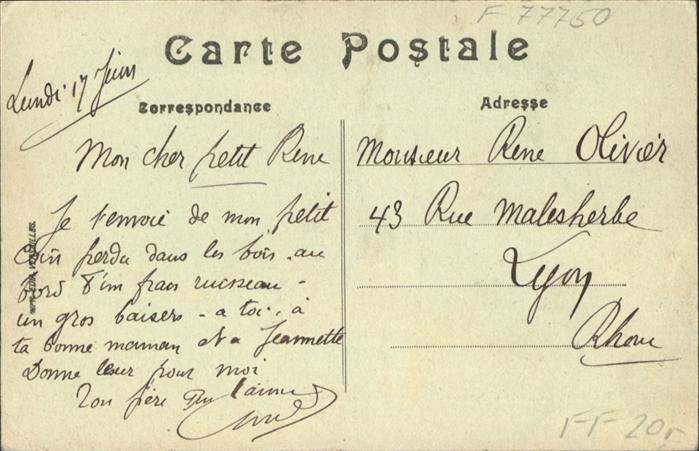 F 77750
Carte Postale
Lundi 17 Juin
Correspondance
Adresse
Mon cher petit Rene
Je t'envoie de mon petit
Coin perdu dans les bois au
bord d'un frais ruisseau -
un gros baisers - a toi, à
ta bonne maman et a Jeannette
Donne leur pour moi
Ton père qui t'aime
Monsieur Rene Olivier
43 Rue Malesherbe
Lyon
Rhone
FF 20r